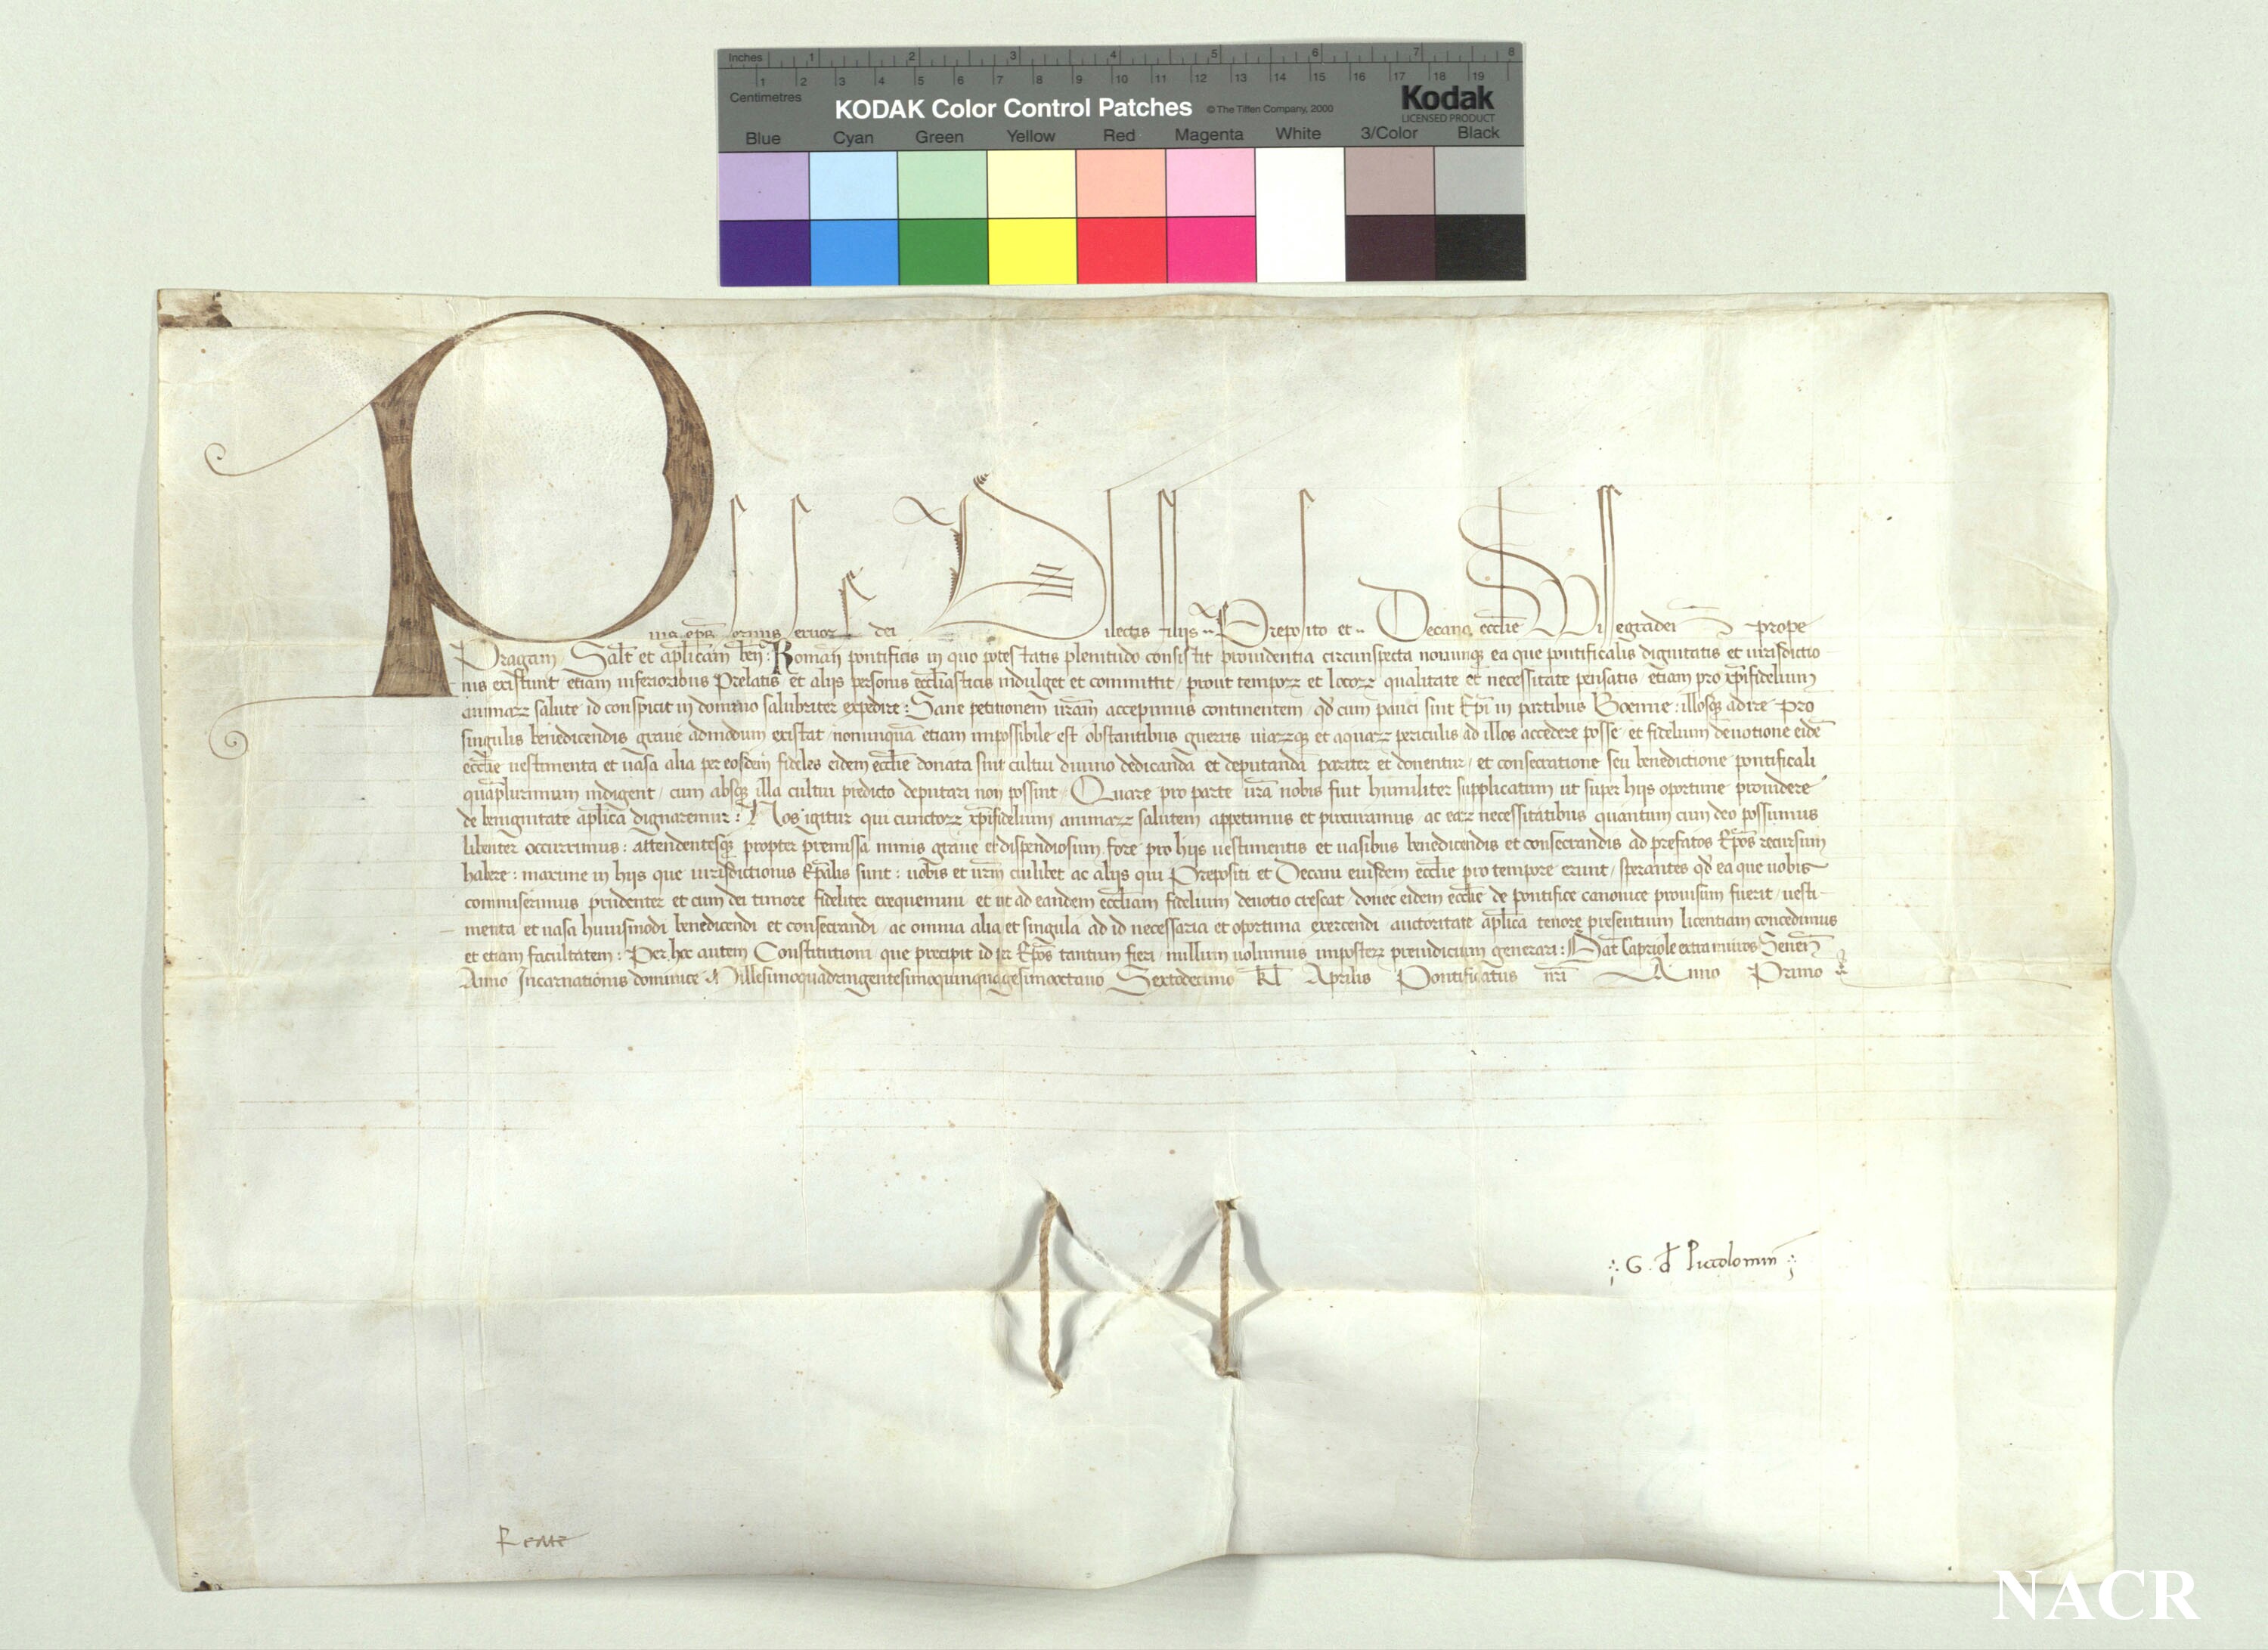 Inches 1 2 3 4 5 6 7 8
1 2 3 4 5 6 7 8 9 10 11 12 13 14 15 16 17 18 19
Centimetres
KODAK Color Control Patches © The Tiffen Company, 2000 Kodak
LICENSED PRODUCT
Blue Cyan Green Yellow Red Magenta White 3/Color Black
Pius ep̄s servus servoꝝ dei Dilectis filijs .. Preposito et .. Decano ecclīe Wissegradeñ prope
Pragam Salt̄ et aplīcam beñ: Romani pontificis in quo potestatis plenitudo consistit prouidentia circunspecta nonnunqȝ ea que pontificalis dignitatis et iurisdictio
nis existunt etiam inferioribus Prelatis et alijs personis eccliasticis indulget et committit / prout temporꝝ et locorꝝ qualitate et necessitate pensatis / etiam pro xp̄ifidelium
animarꝝ salute id conspicit in domino salubriter expedire: Sane petitionem vrām accepimus continentem / qd̄ cum pauci sint Ep̄i in partibus Boemie: illosqȝ adire pro
singulis benedicendis graue admodum existat / nonunquā etiam impossibile est obstantibus guerris uiarꝝqȝ et aquarꝝ periculis ad illos accedere posse et fidelium deuotione eidē
ecclīe uestimenta et uasa alia per eosdem fideles eidem ecclīe donata sint cultui diuino dedicanda et deputanda pariter et donentur / et consecratione seu benedictione pontificali
quāplurimum indigent / cum absqȝ illa cultui predicto deputari non possint / Quare pro parte vrā nobis fuit humiliter supplicatum ut super hijs oportune prouidere
de benignitate aplīca dignaremur: Nos igitur qui cunctorꝝ xp̄ifidelium animarꝝ salutem appetimus et procuramus ac earꝝ necessitatibus quantum cum deo possumus
libenter occurrimus: attendentesqȝ propter premissa nimis graue et dispendiosum fore pro hijs uestimentis et uasibus benedicendis et consecrandis ad prefatos Ep̄os recursum
habere: maxime in hijs que iurisdictionis Ep̄alis sunt: uobis et vrm̄ cuilibet ac alijs qui Prepositi et Decani eiusdem ecclīe pro tempore erunt / sperantes qd̄ ea que uobis
commiserimus prudenter et cum dei timore fideliter exequemini et ut ad eandem eccliam fidelium deuotio crescat / donec eidem ecclīe de pontifice canonice prouisum fuerit / uesti-
menta et uasa huiusmodi benedicendi et consecrandi / ac omnia alia et singula ad id necessaria et oportuna exercendi auctoritate aplīca tenore presentium licentiam concedimus
et etiam facultatem: Per hoc autem Constitutioni que precipit id per Ep̄os tantum fieri / nullum uolumus imposterꝝ preiudicium generari: Dat̄ Capriole extra muros Seneñ
Anno Incarnationis dominice Millesimoquadringentesimoquinquagesimooctauo Sextodecimo kl̄ Aprilis Pontificatus nrī Anno Primo
G. d Piccolomin
NACR